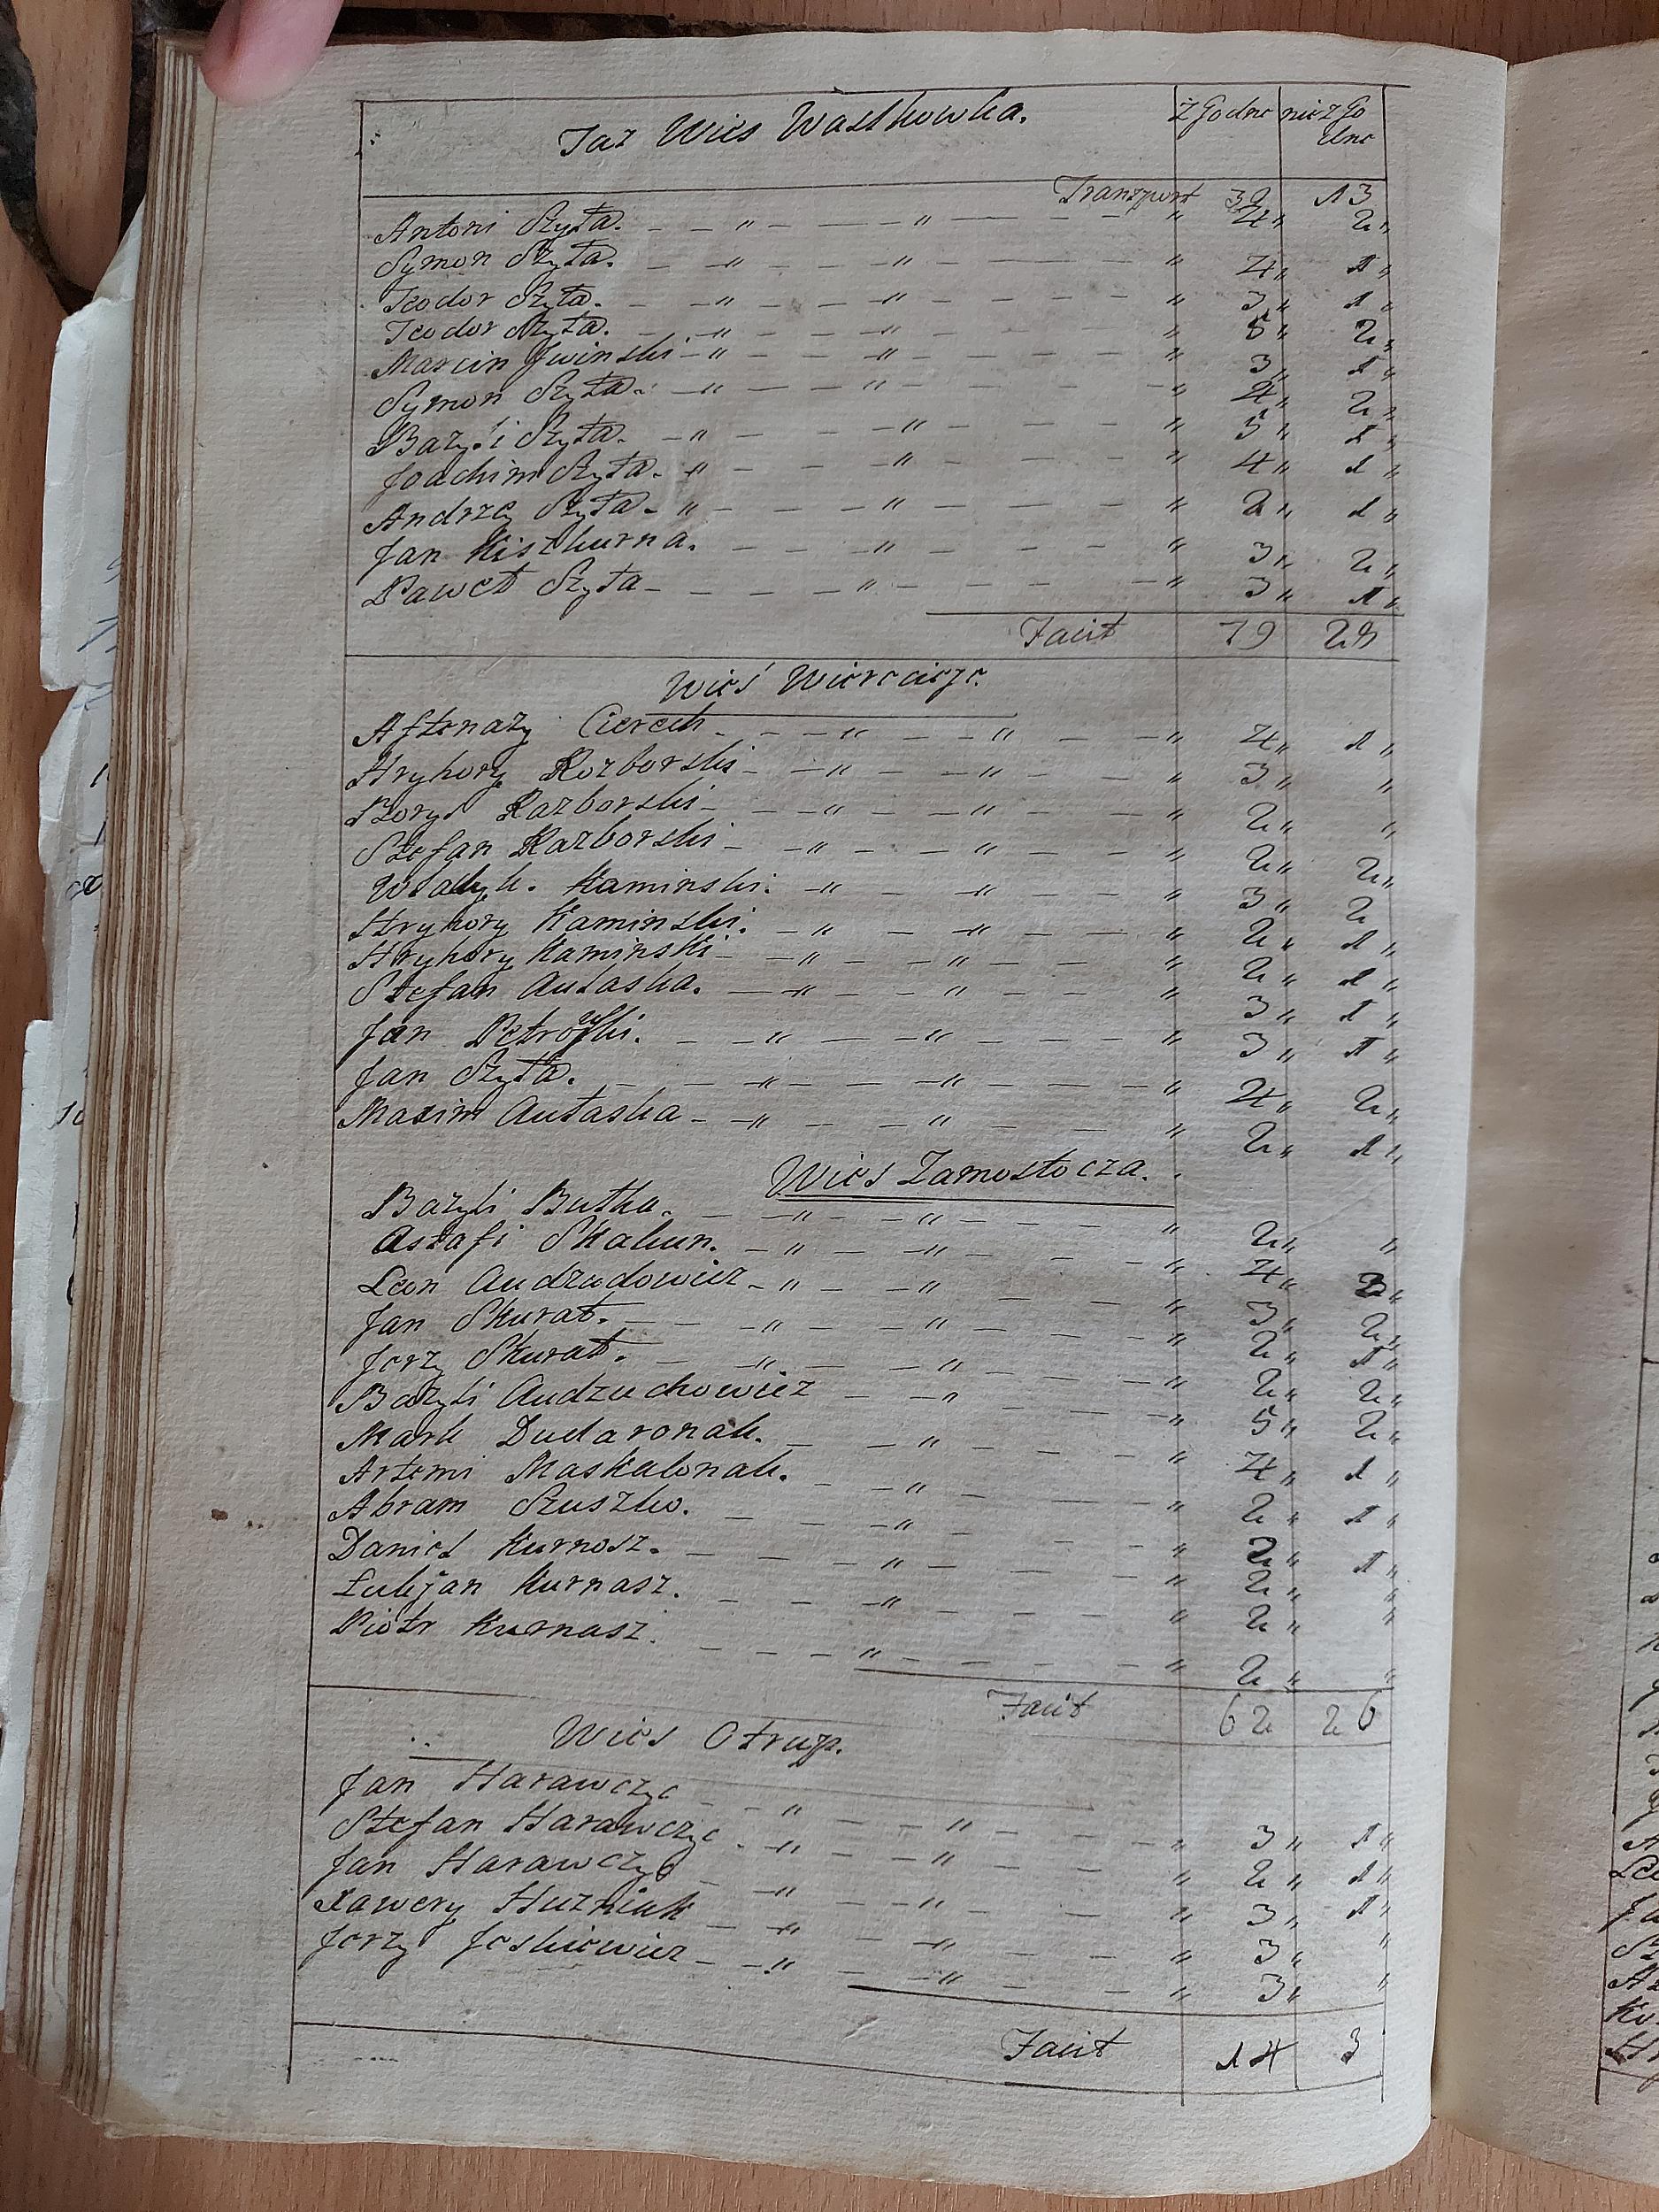 Taz Wieś Waśkowka. zgodne niezgo
dne
Transport 39 13
Antoni Szyta. 4 2
Symon Szyta. 4 1
Teodor Szyta. 3 1
Teodor Szyta. 5 2
Marcin Jwinski 3 1
Symon Szyta. 4 2
Bazyli Szyta. 5 1
Joachim Szyta. 4 1
Andrzey Szyta. 2 1
Jan Kiszkurna. 3 2
Paweł Szyta 3 1
Facit 79 28
Wieś Wiercieze.
Aftanazy Cierech. 4 1
Hryhory Rozborski 3
Borys Razborski 2
Stefan Razborski 2 2
Kaminski. 3 2
Hryhory Kaminski. 2 1
Hryhory Kaminski 2 1
Stefan Autaska. 3 1
Jan Petrowski. 3 1
Jan Szyta. 4 2
Maxim Autaska 2 1
Wieś Zamostocza.
Bazyli Butka. 2
Astafi Skakun. 4
Leon Audzudowicz 3 2
Jan Skurat. 2 1
Jerzy Skurat. 2 2
Bazyli Audzuchowicz 5 2
Mark Dudaronak. 4 1
Artemi Maskalonak. 2 1
Abram Szuszko. 2 1
Daniel Kurnosz. 2
Łukjan Kurnasz. 2
Piotr Kurnasz. 2
Facit 62 26
Wieś Otrup.
Jan Harawczyc 3 1
Stefan Harawczyc 2 1
Jan Harawczyc 3 1
Xawery Huzniak 3
Jerzy Joskiewicz 3
Facit 14 3